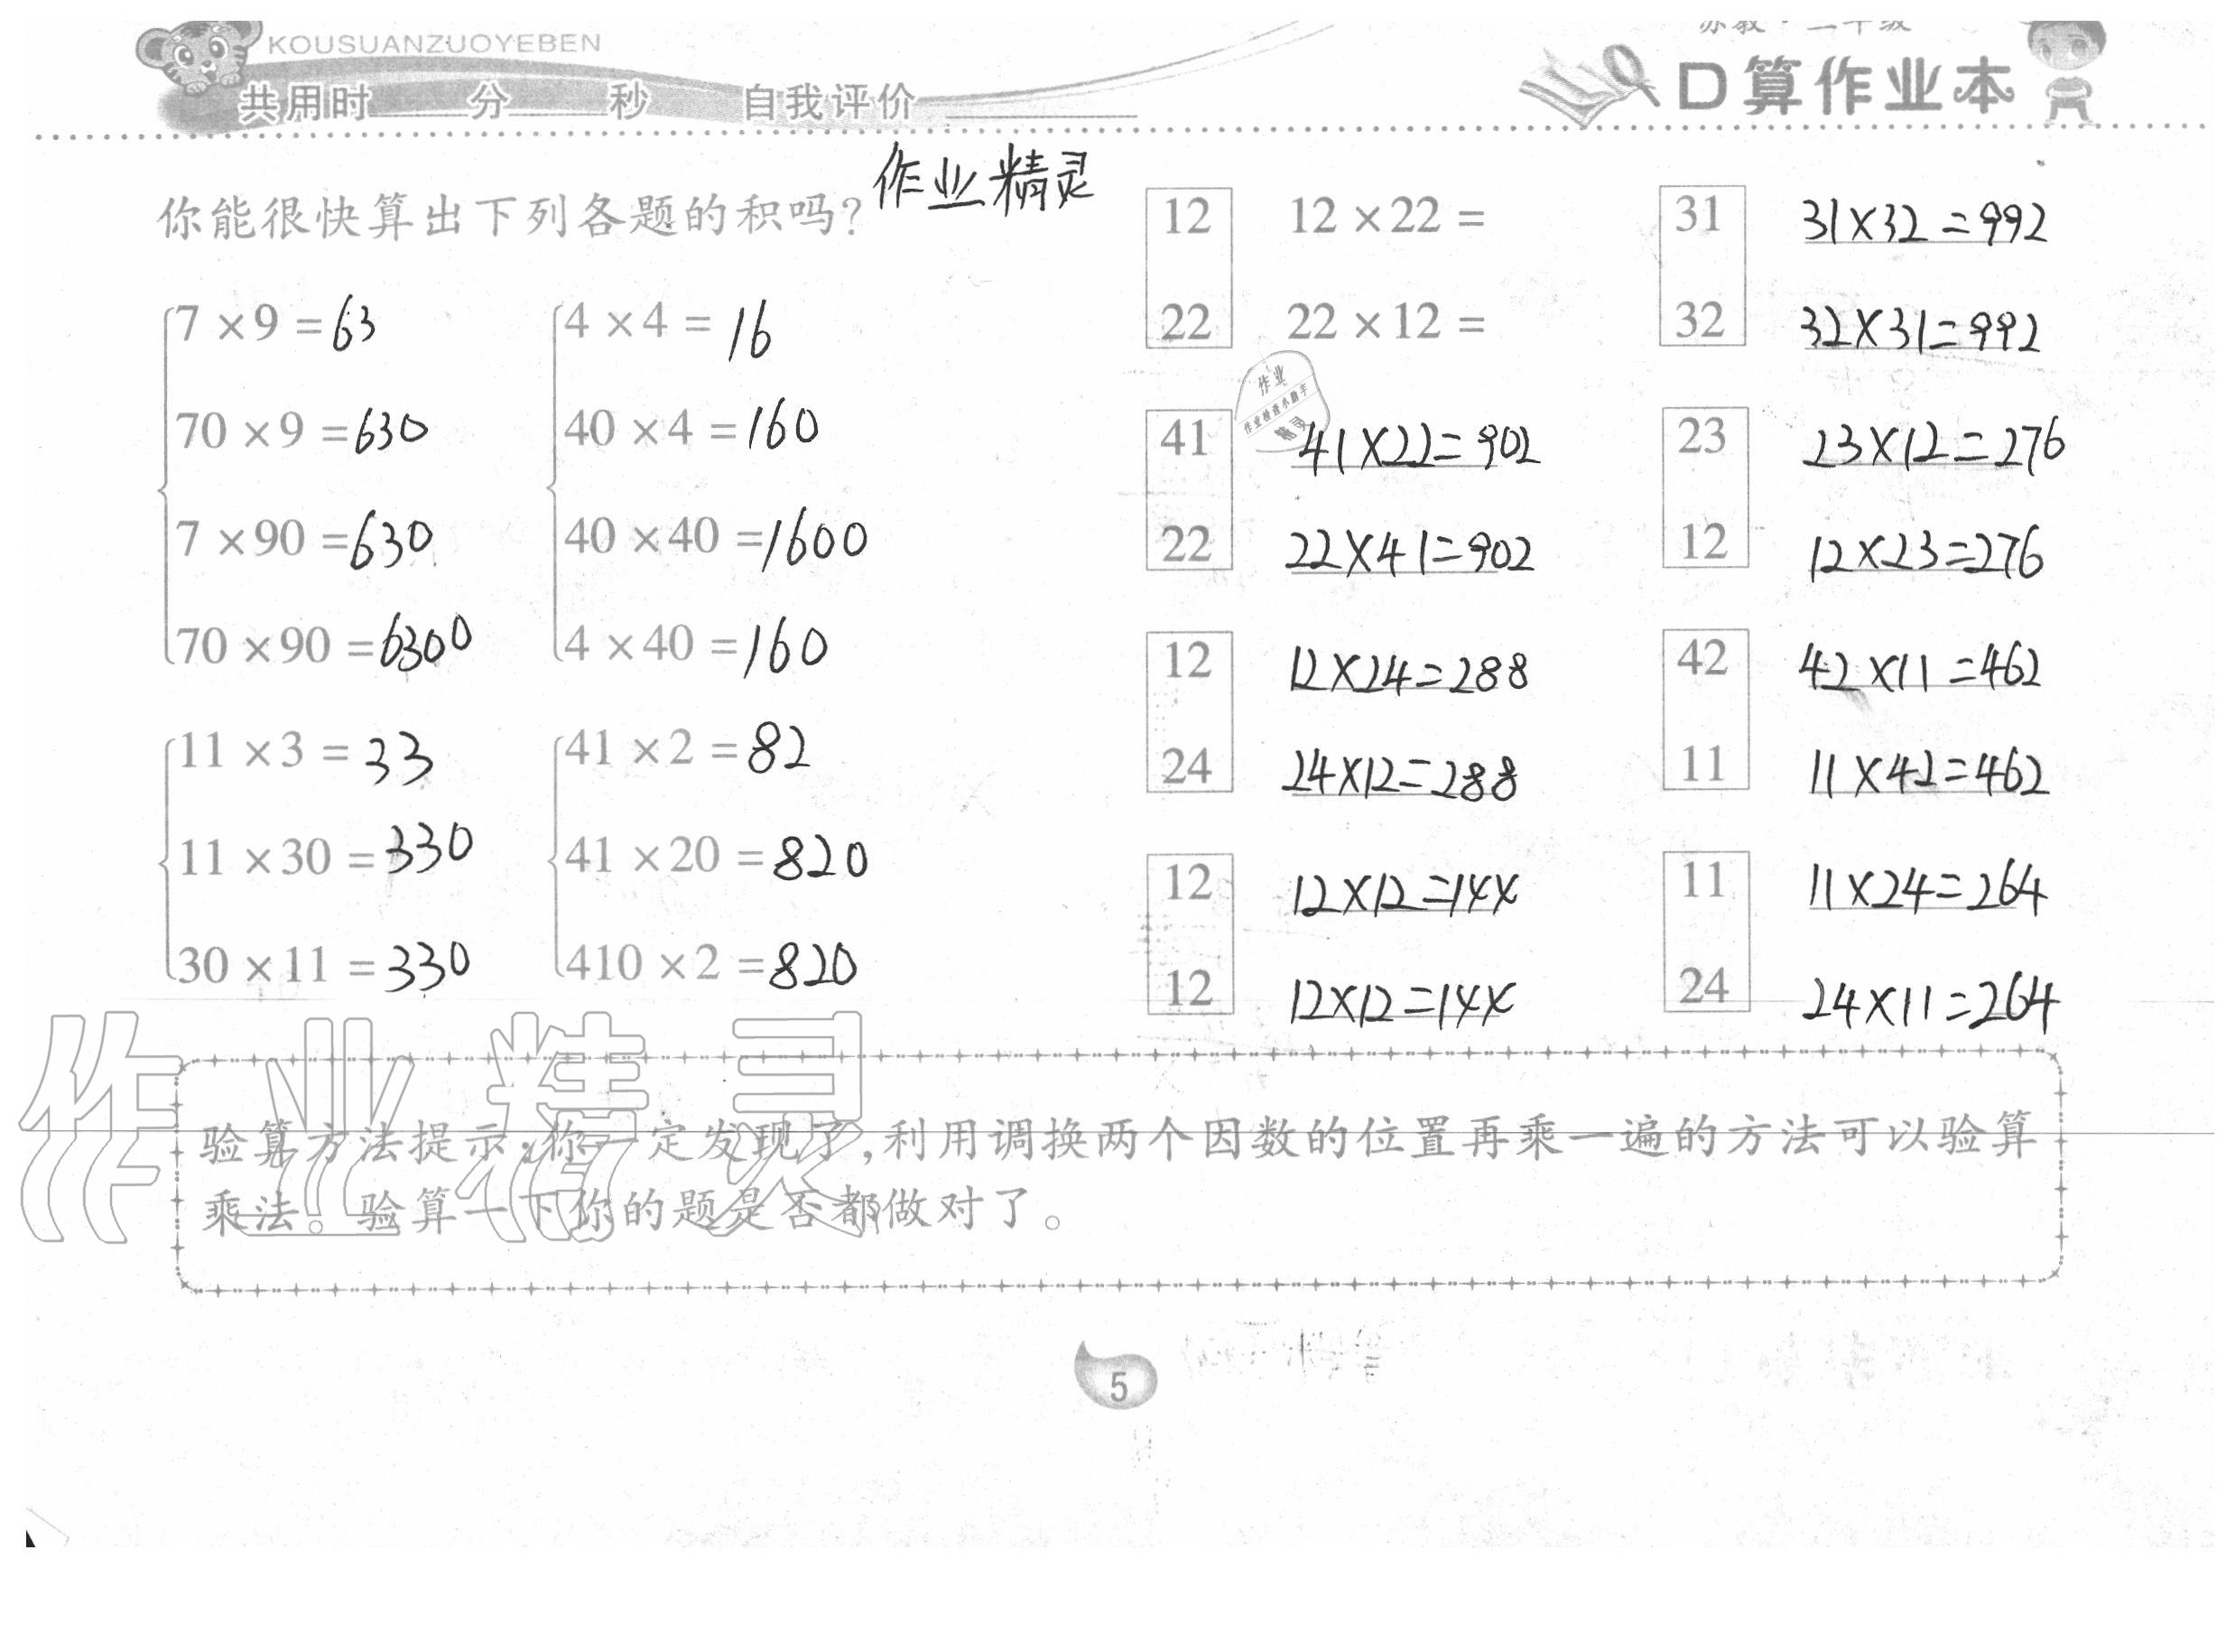 KOUSUANZUOYEBEN
共用时 分 秒 自我评价
口算作业本
你能很快算出下列各题的积吗?
作业精灵
7×9=63
70×9=630
7×90=630
70×90=6300
4×4=16
40×4=160
40×40=1600
4×40=160
11×3=33
11×30=330
30×11=330
41×2=82
41×20=820
410×2=820
12 12×22=
22 22×12=
31 31×32=992
32 32×31=992
作业
作业检查小助手
精灵
41 41×22=902
22 22×41=902
23 23×12=276
12 12×23=276
12 12×24=288
24 24×12=288
42 42×11=462
11 11×42=462
12 12×12=144
12 12×12=144
11 11×24=264
24 24×11=264
作业精灵
验算方法提示:你一定发现了,利用调换两个因数的位置再乘一遍的方法可以验算
乘法。验算一下你的题是否都做对了。
5